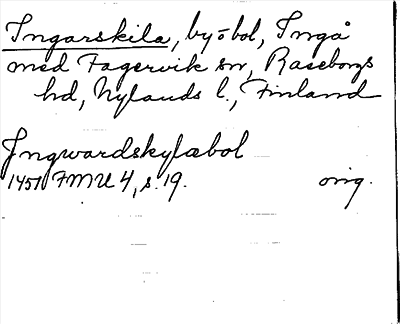 Ingarskila, by o bol, Ingå
med Fagervik sn, Raseborgs
hd, Nylands l., Finland
Ingwardskylæbol
1451 FMU 4, s. 19. orig.